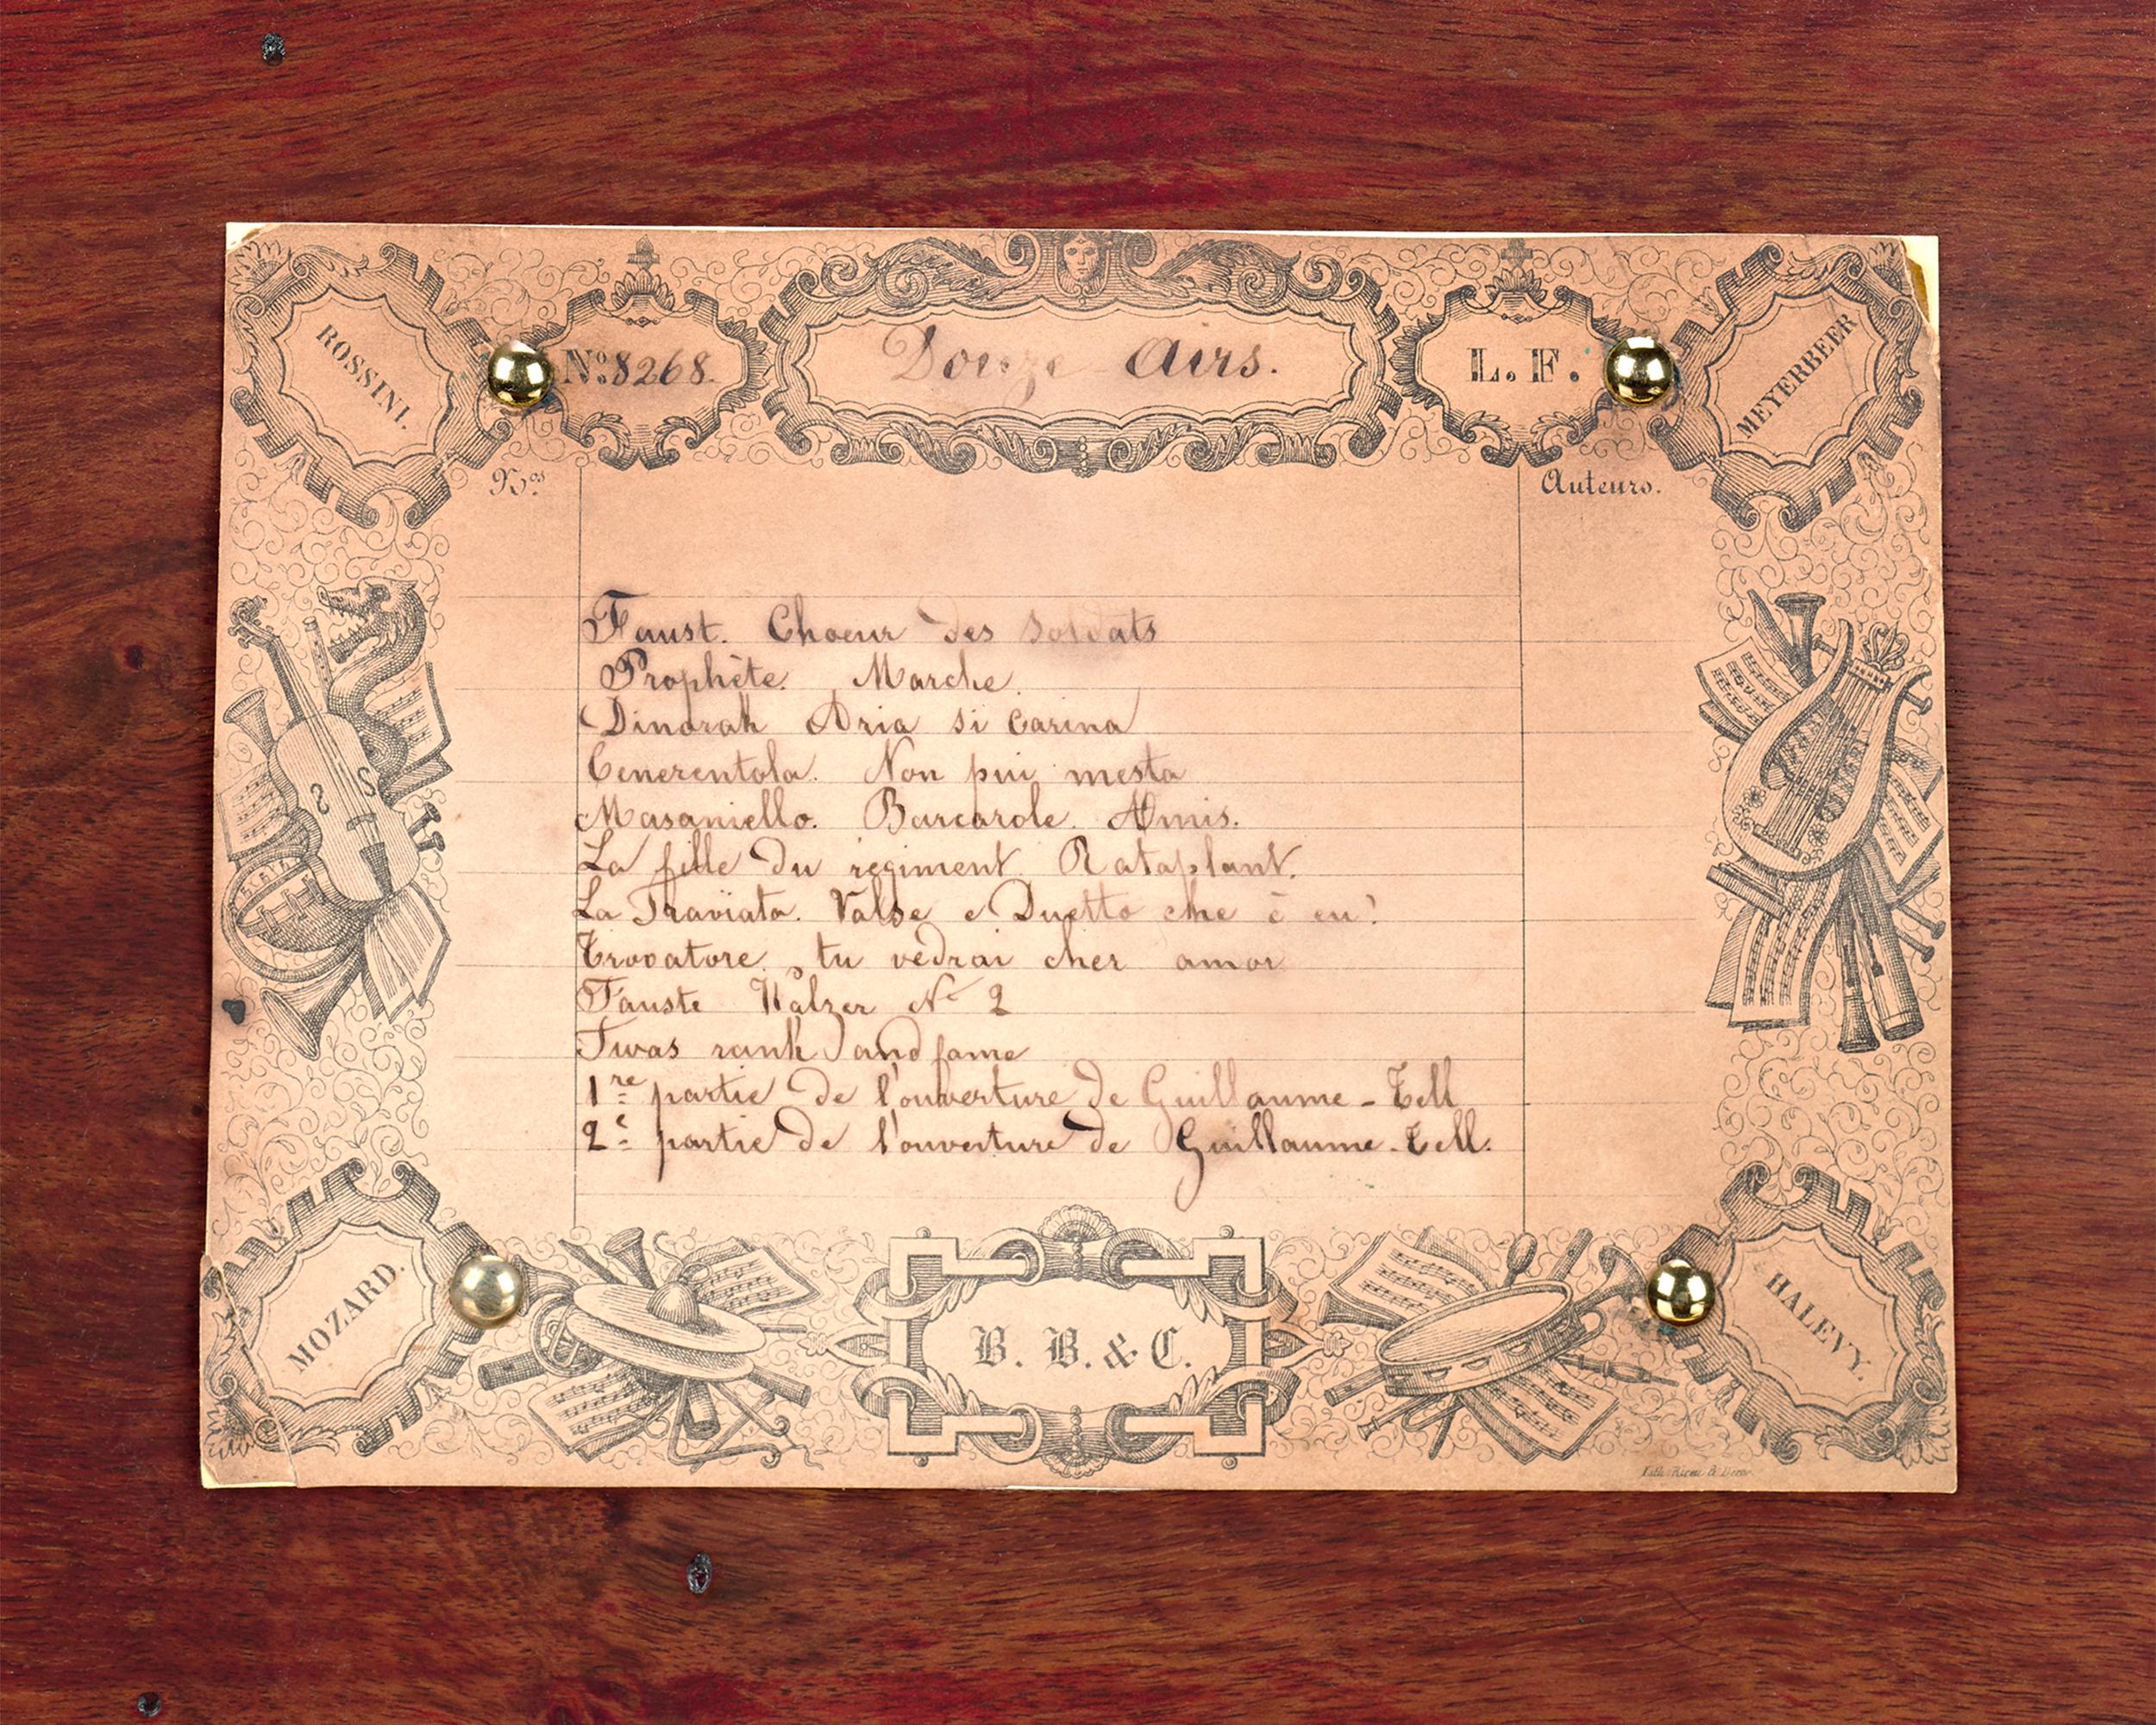 ROSSINI.
Nº 8268.
Douze Airs.
L. F.
MEYERBEER
Nos
Auteurs.
Faust. Choeur des Soldats
Prophète. Marche.
Dinorah Aria si Carina
Cenerentola. Non piu mesta
Masaniello. Barcarole. Amis.
La fille du régiment. Rataplant.
La Traviata. Valse e Duetto che è
Trovatore. tu vedrai cher amor
Fauste Walzer Nº 2
Twas rank and fame
1re partie de l'ouverture de Guillaume-Tell
2e partie de l'ouverture de Guillaume-Tell.
MOZARD.
B. B. & C.
HALEVY.
Lith.